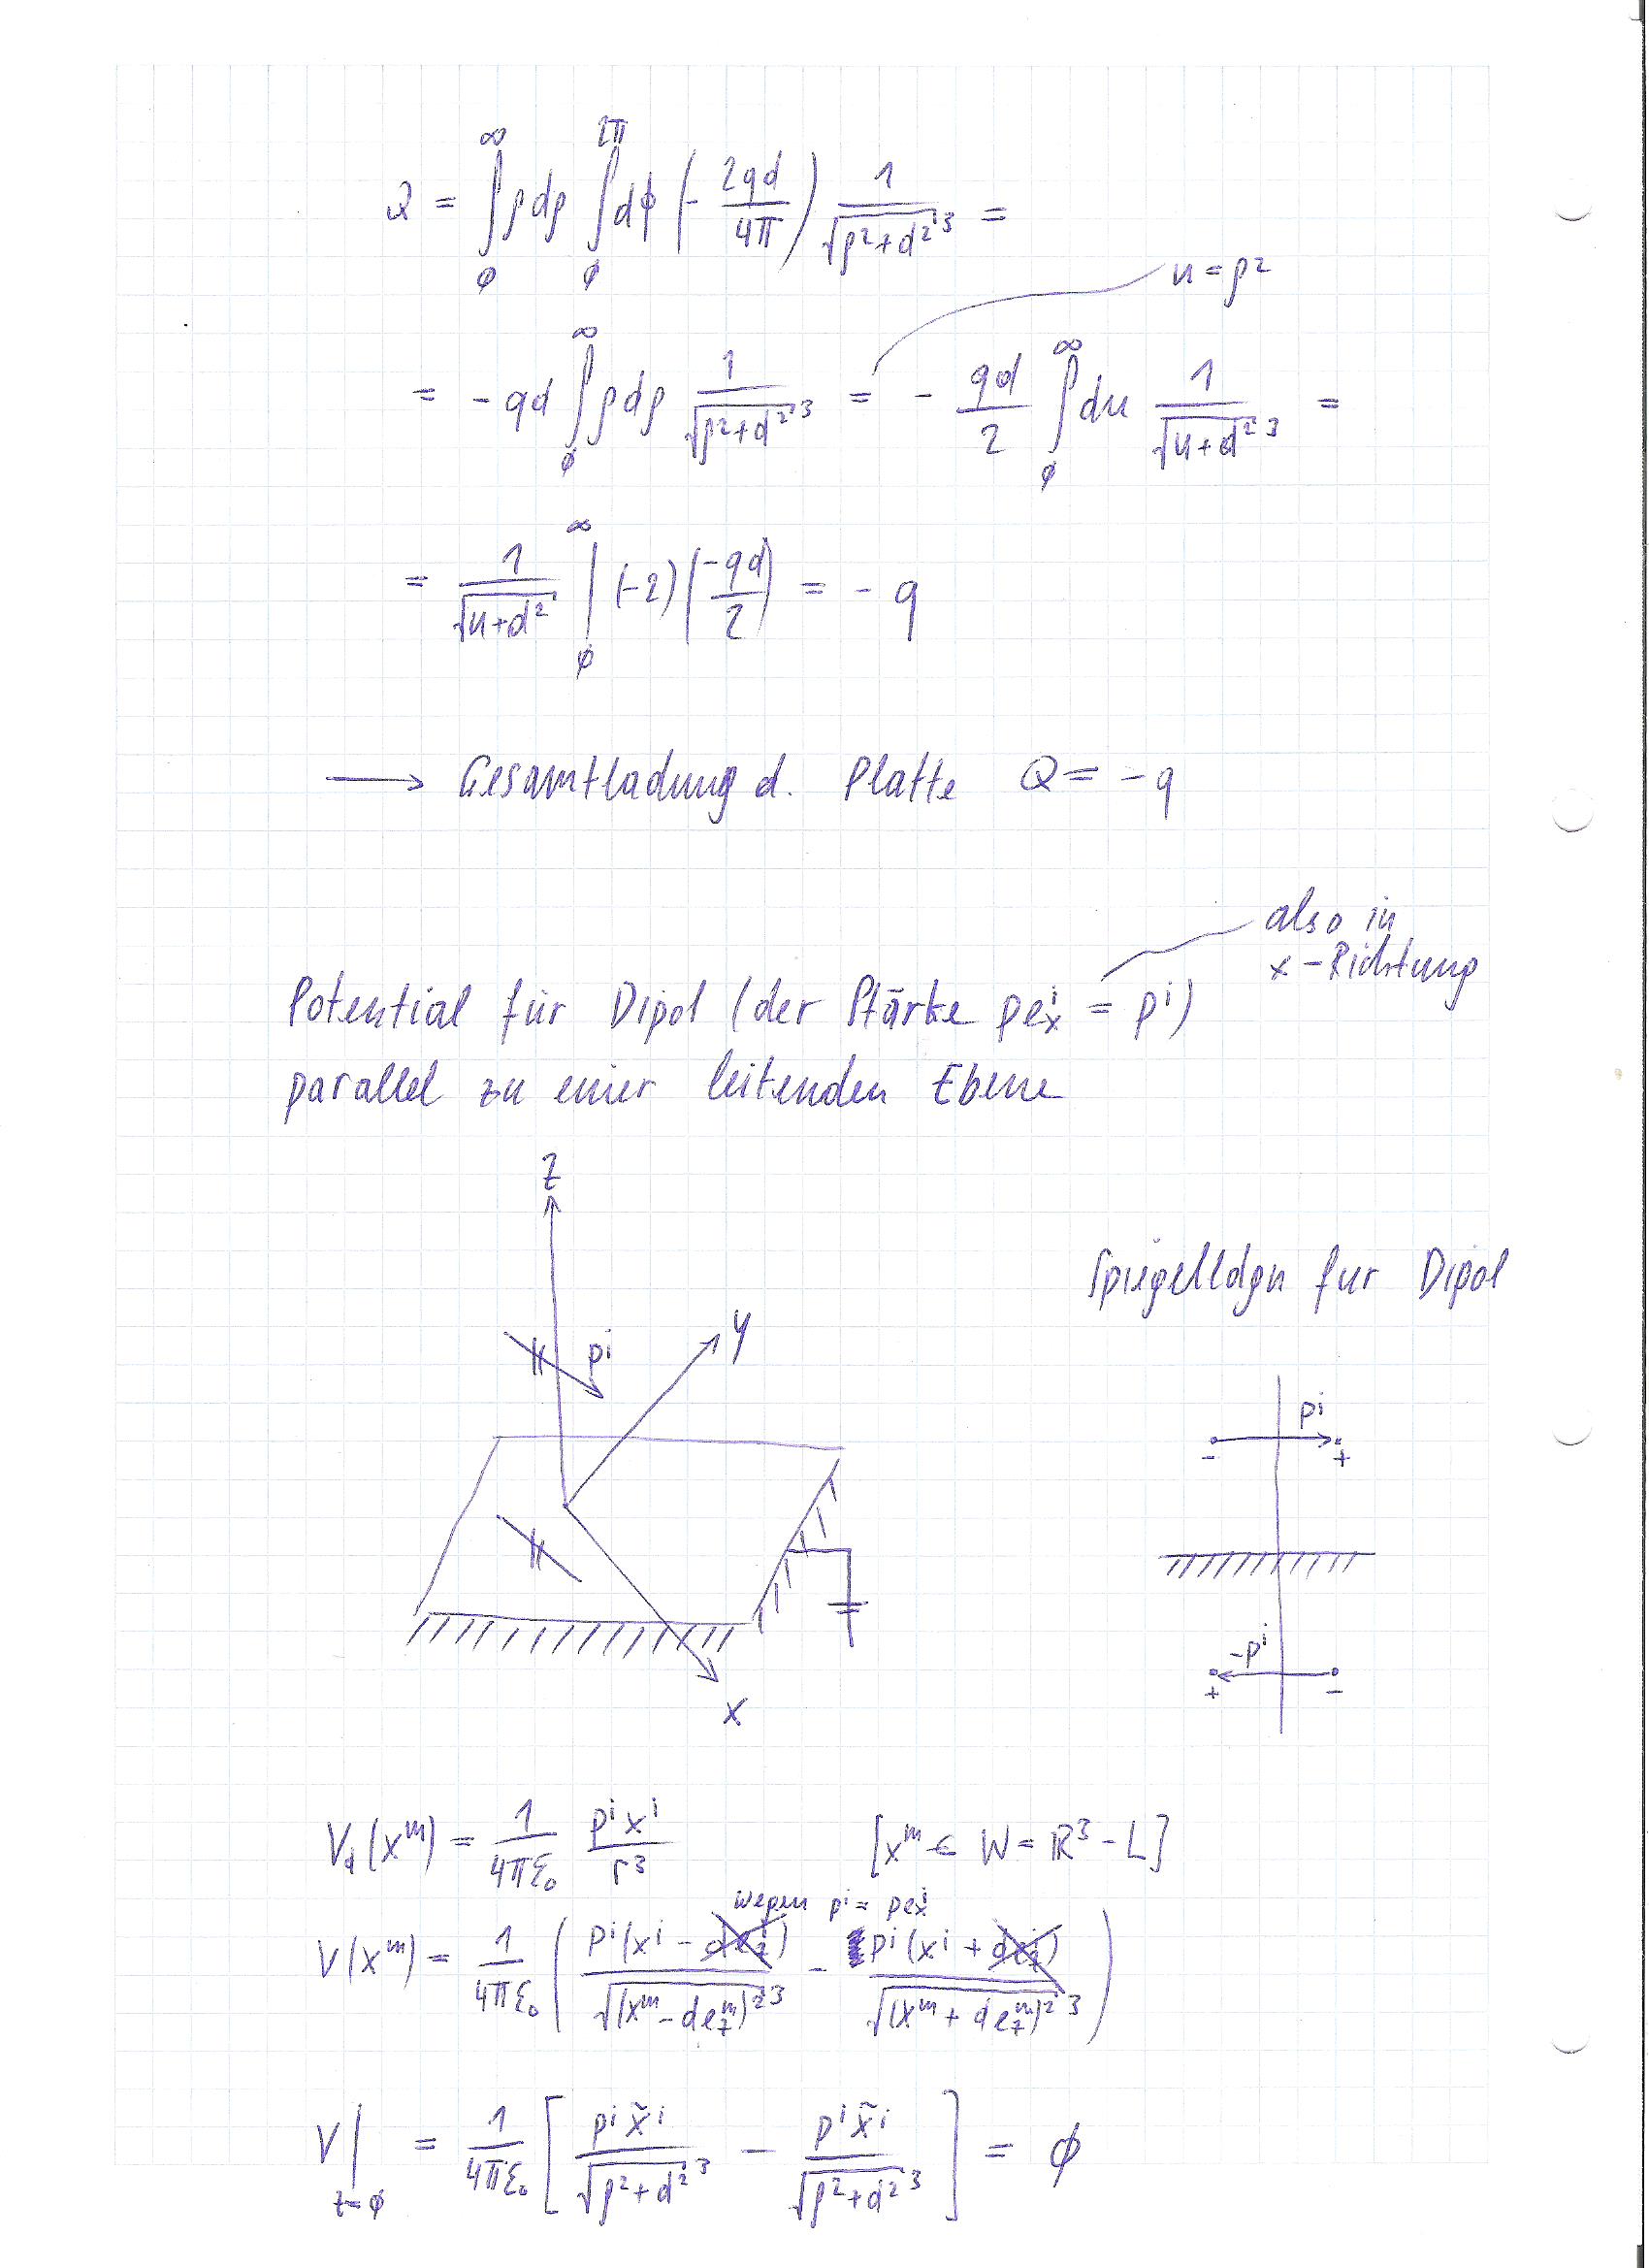 Q = ∫₀^∞ ρ dρ ∫₀^2π dϕ (- 2qd/4π) 1/√(ρ²+d²)³ =
u = ρ²
= - qd ∫₀^∞ ρ dρ 1/√(ρ²+d²)³ = - qd/2 ∫₀^∞ du 1/√(u+d²)³ =
= 1/√(u+d²) |₀^∞ (-2) (-qd/2) = - q
→ Gesamtladung d. Platte Q = -q
also in
x-Richtung
Potential für Dipol (der Stärke pe_x^i = p^i)
parallel zu einer leitenden Ebene
z
Spiegelldgn fur Dipol
y
p^i
p^i
- +
-p^i
+ -
x
V_d(x^m) = 1/4πε₀ p^i x^i/r³ [x^m ∈ W = ℝ³ - L]
wegen p^i = pe_x^i
V(x^m) = 1/4πε₀ ( p^i(x^i - de_z^i)/√(x^m - de_z^m)²³ - p^i(x^i + de_z^i)/√(x^m + de_z^m)²³ )
V|_z=0 = 1/4πε₀ [ p^i x̃^i/√(ρ²+d²)³ - p^i x̃^i/√(ρ²+d²)³ ] = 0